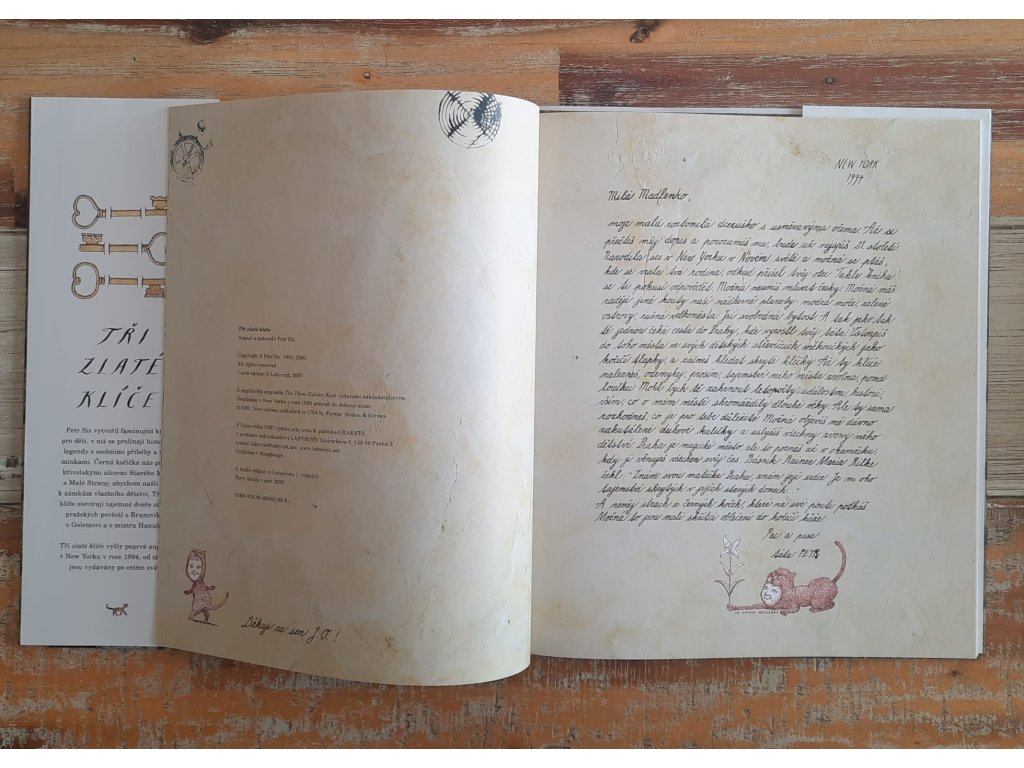 TŘI
ZLATÉ
KLÍČE
Petr Sís vytvořil fascinující
pro děti, v níž se prolínají
legendy s osobními příběhy a
mínkami. Černá kočička nás
křivolakými ulicemi Starého
a Malé Strany, abychom našli
k zámkům vlastního dětství.
klíče otevírají tajemné dveře
pražských pověstí o
o Golemovi a o mistru
Tři zlaté klíče vyšly poprvé
v New Yorku v roce 1994, od
jsou vydávány po celém
Tři zlaté klíče
Napsal a nakreslil Petr Sís
Copyright © Petr Sís, 1994, 2001
All rights reserved
Czech edition © Labyrint, 2007
Z anglického originálu The Three Golden Keys vydaného nakladatelstvím
Doubleday v New Yorku v roce 1994 převedl do češtiny autor
© 2001, New edition published in USA by Farrar, Straus & Giroux
V Praze roku 2007 vydala jako svou 6. publikaci RAKETA
v produkci nakladatelství LABYRINT, Dittrichova 5, 120 00 Praha 2
e-mail: labyrint@labyrint.net, www.labyrint.net
Vytištěno v Hongkongu
Nový dotisk v roce
Děkuji za sen J.O.!
NEW YORK
1994
Milá Madlenko,
moje malá roztomilá dceruško s usměvavýma očima. Až si
přečteš můj dopis a porozumíš mu, bude už nejspíš 21. století.
Narodila ses v New Yorku v Novém světě a možná se ptáš,
kde se vzala tvá rodina, odkud přišel tvůj otec. Tahle kniha
se ti pokusí odpovědět. Možná neumíš mluvit česky. Možná máš
raději jiné kouty naší nádherné planety: modrá moře, zelené
ostrovy, rušná velkoměsta. Jsi svobodná bytost. A tak jako tak
tě jednou čeká cesta do Prahy, kde vyrostl tvůj táta. Vstoupíš
do toho města ve svých dětských střevíčcích, měkoučkých jako
kočičí tlapky, a začneš hledat skryté klíčky. Až ty klíče
nalezneš, odemykej, prosím, tajemství mého města zvolna, poma-
loučku. Mohl bych tě zahrnout letopočty, událostmi, historií,
vším, co v mém městě shromáždily dlouhé věky. Ale ty sama
rozhodneš, co je pro tebe důležité. Možná objevíš mé dávno
zakutálené duhové kuličky a uslyšíš všechny zvony mého
dětství. Praha je magické místo, ale to poznáš až v okamžiku,
kdy jí věnuješ všechen svůj čas. Básník Rainer Maria Rilke
řekl: "Znám svou matičku Prahu, znám její srdce. Je mnoho
tajemství skrytých v jejích starých domech."
A neměj strach z černých koček, které na své pouti potkáš.
Možná to jsou malí skřítci oblečení do kočičí kůže.
Pac a pusu
táta PETR